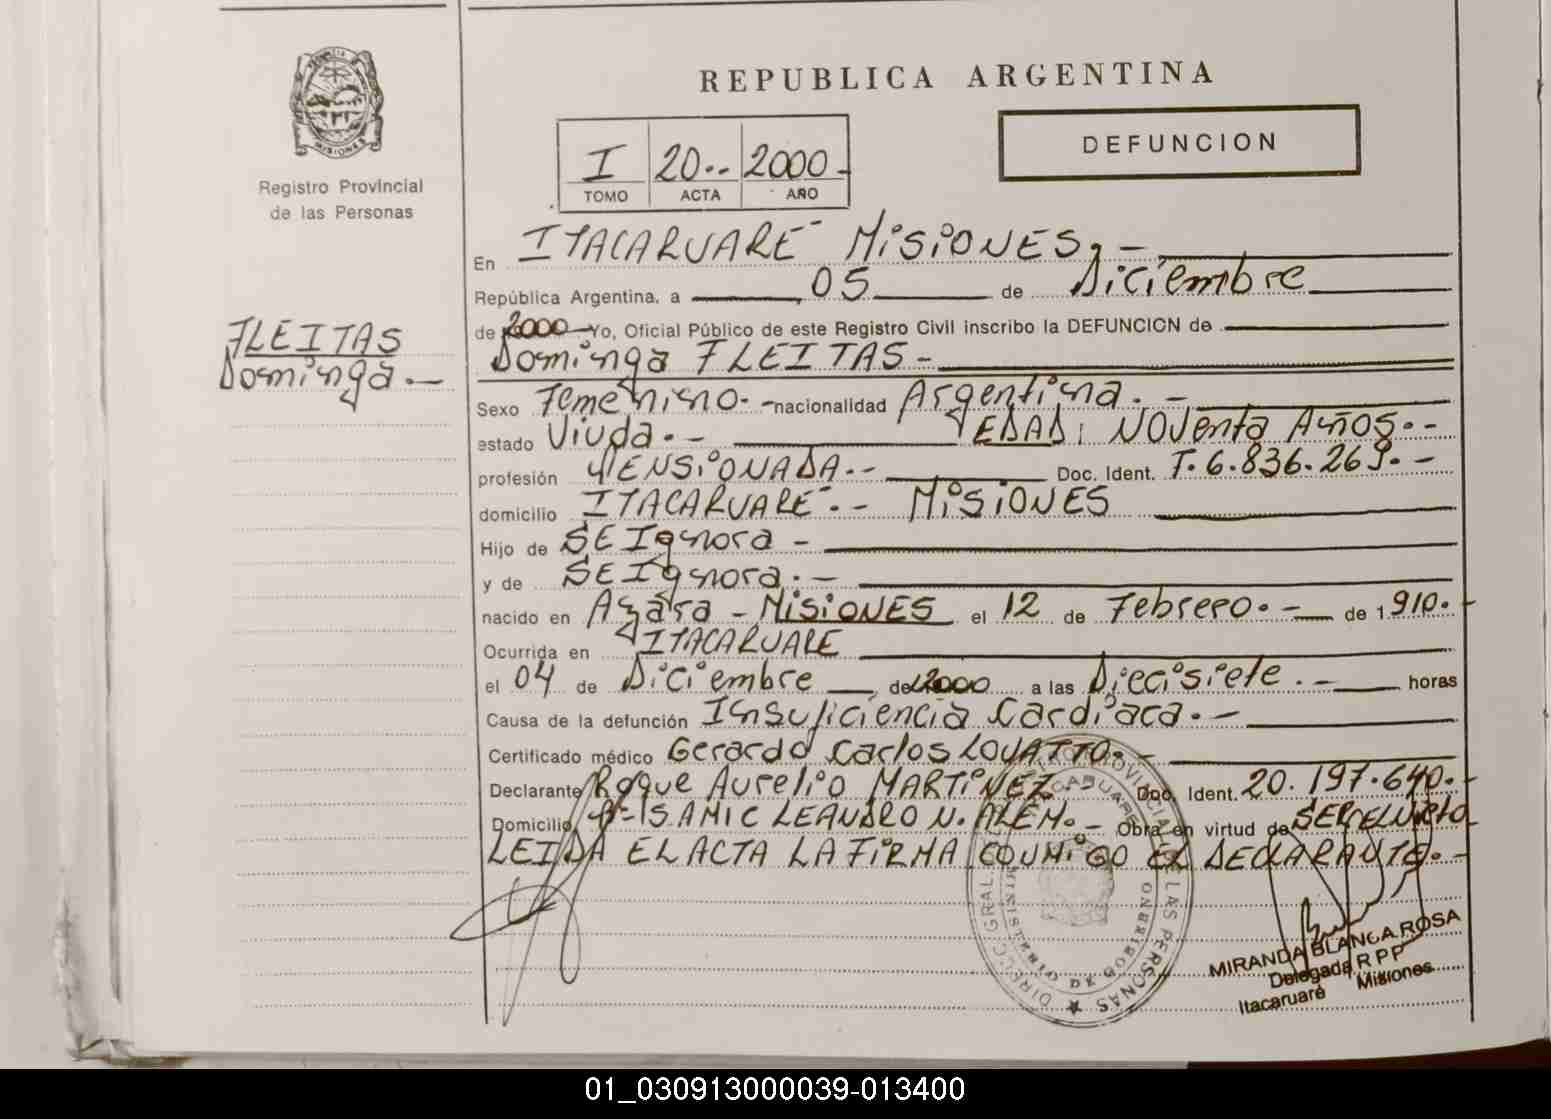 REPUBLICA ARGENTINA
MISIONES
Registro Provincial
de las Personas
I 20.. 2000-
TOMO ACTA AÑO
DEFUNCION
En ITACARUARÉ MISIONES, -
República Argentina, a 05 de Diciembre
de 2000 Yo, Oficial Público de este Registro Civil inscribo la DEFUNCION de
FLEITAS
Dominga.-
Dominga FLEITAS-
Sexo Femenino. - nacionalidad Argentina. -
estado Viuda.- EDAD: Noventa Años.-
profesión PENSIONADA.- Doc. Ident. T. 6.836.269.-
domicilio ITACARUARÉ.- MISIONES
Hijo de SE Ignora -
y de SE Ignora.-
nacido en Azara - MISIONES el 12 de Febrero.- de 1.910.-
Ocurrida en ITACARUARE
el 04 de Diciembre de 2000 a las Diecisiete.- horas
Causa de la defunción Insuficiencia Cardiaca.-
Certificado médico Gerardo Carlos LOVATTO.-
Declarante Roque Aurelio MARTINEZ Doc. Ident. 20.197.640.-
Domicilio Bº IS AMIC LEANDRO N. ALEM.- Obra en virtud de
LEIDA EL ACTA LA FIRMA CONMIGO EL DECLARANTE.-
DIRECC. GRAL. PROVINCIAL DE LAS PERSONAS
MINISTERIO DE GOBIERNO
MIRANDA BLANCA ROSA
Delegada R P P
Itacaruaré Misiones
01_030913000039-013400